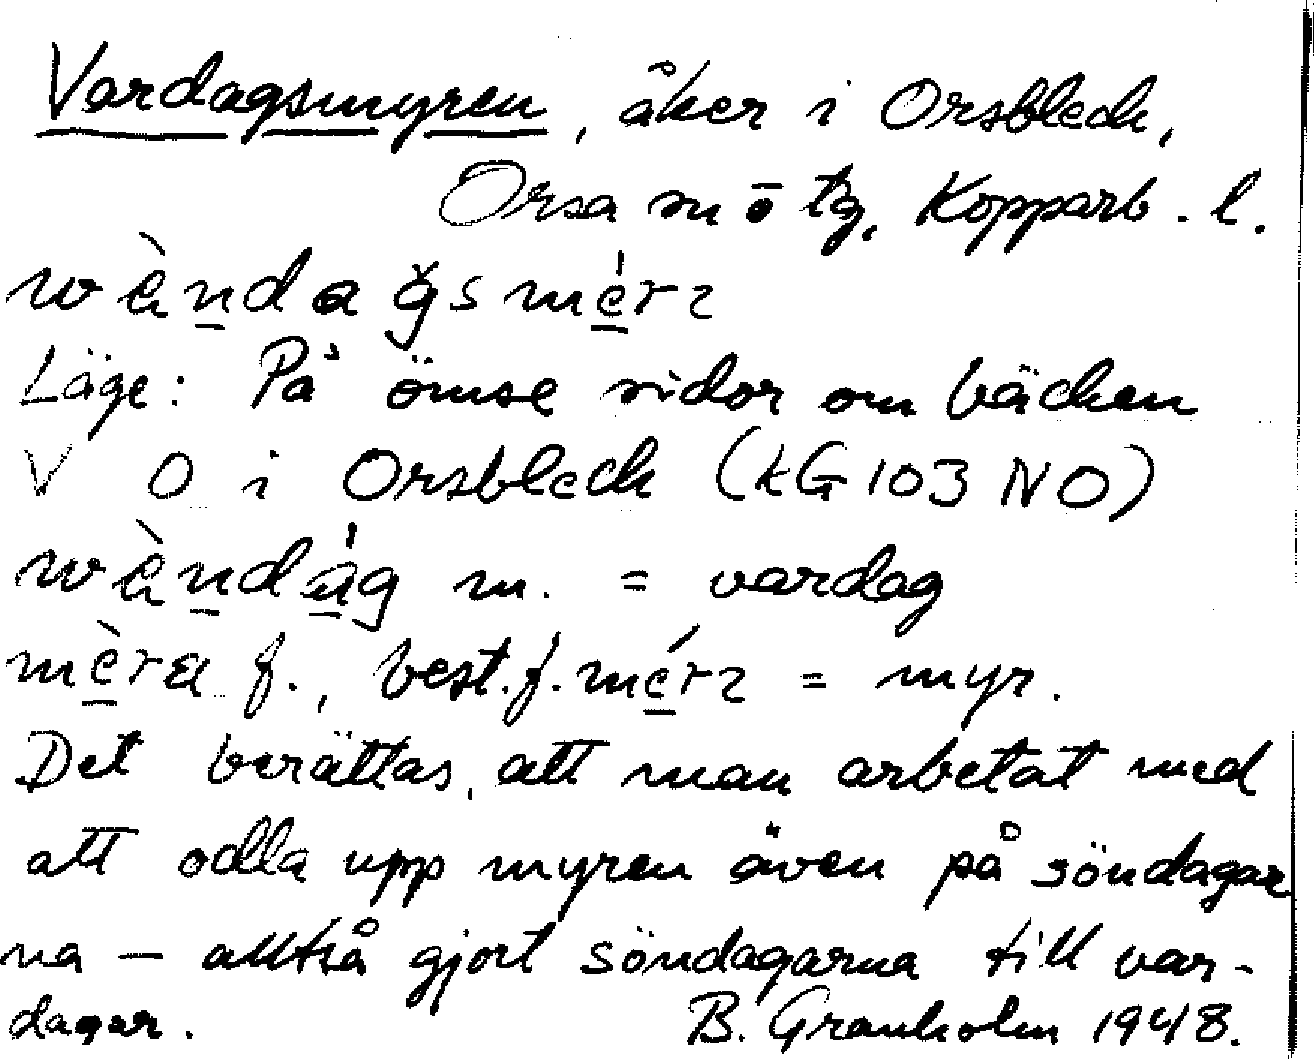 Vardagsmyren, åker i Orsbleck,
Orsa sn o tg, Kopparb. l.
wὲndagsmérɿ
Läge: På ömse sidor om bäcken
V O i Orsbleck (KG 103 NO)
wὲndág m. = vardag
mèra f., best.f. mérɿ = myr.
Det berättas, att man arbetat med
att odla upp myren även på söndagar
na — alltså gjort söndagarna till var-
dagar. B. Granholm 1948.